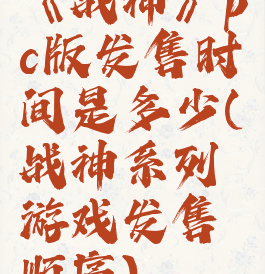 《战神》p
c版发售时
间是多少(
战神系列
游戏发售
顺序)